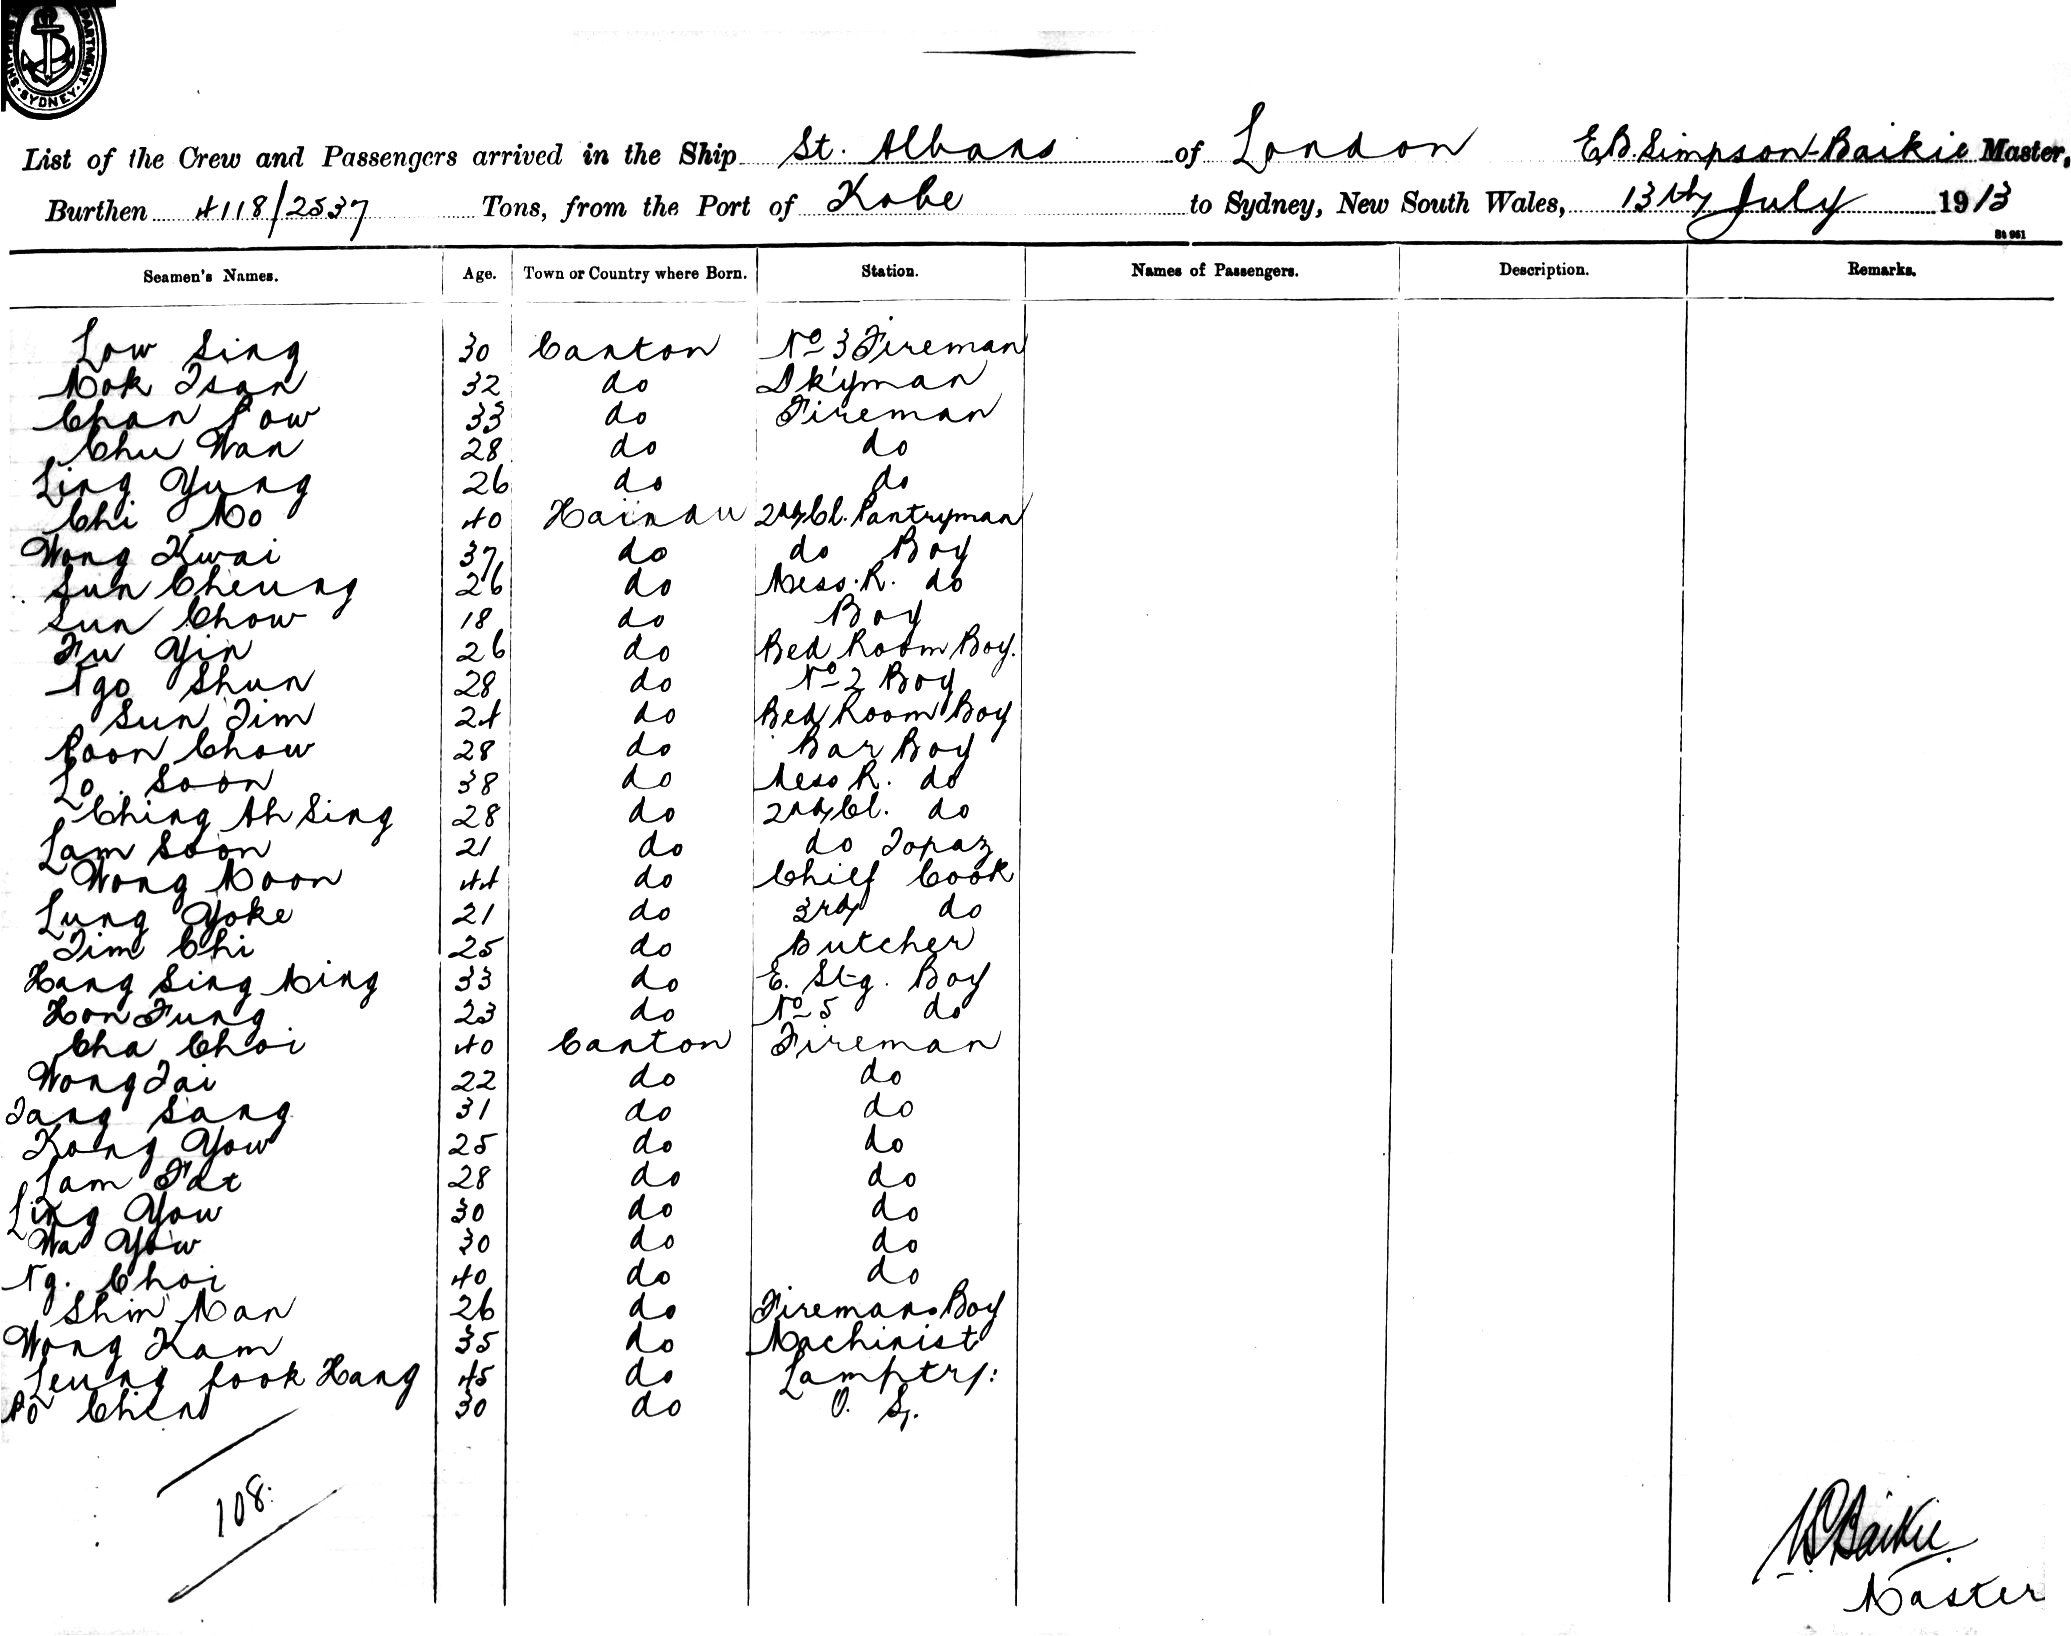 DEPARTMENT SYDNEY
List of the Crew and Passengers arrived in the Ship St. Albans of London E.B. Simpson-Baikie Master,
Burthen 4118/2537 Tons, from the Port of Kobe to Sydney, New South Wales, 13th July 1913
St 961
Seamen's Names. Age. Town or Country where Born. Station. Names of Passengers. Description. Remarks.
Low Sing 30 Canton No 3 Fireman
Mok Tsan 32 do Dkyman
Chan Pow 33 do Fireman
Chu Wan 28 do do
Ling Yung 26 do do
Chi Mo 40 Hainau 2nd Cl. Pantryman
Wong Kwai 37 do do Boy
Sun Cheung 26 do Mess. R. do
Sun Chow 18 do Boy
Fu Yin 26 do Bed Room Boy.
Ngo Shun 28 do No 2 Boy
Sun Tim 24 do Bed Room Boy
Poon Chow 28 do Bar Boy
Lo Soon 38 do Mess R. do
Ching Ah Sing 28 do 2nd Cl. do
Lam Soon 21 do do Topaz
Wong Moon 44 do Chief Cook
Lung Yoke 21 do 3rd do
Tim Chi 25 do Butcher
Hang Sing Ming 33 do E. Stg. Boy
Hon Fung 23 do No 5 do
Cha Choi 40 Canton Fireman
Wong Tai 22 do do
Tang Sang 31 do do
Kong Yow 25 do do
Lam Fat 28 do do
Ling You 30 do do
Wa Yow 30 do do
Ng. Choi 40 do do
Shin Man 26 do Firemans Boy
Wong Kam 35 do Machinist
Leung fook Hang 45 do Lamptry:
Po Chen 30 do O. S.
108.
Baikie
Master